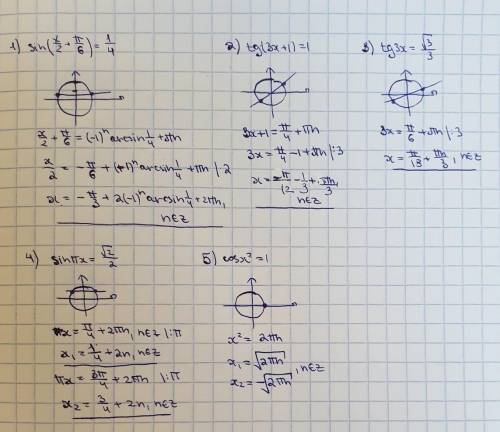 1) sin(x/2 + π/6) = 1/4
x/2 + π/6 = (-1)ⁿ arcsin 1/4 + πn
x/2 = -π/6 + (-1)ⁿ arcsin 1/4 + πn |·2
x = -π/3 + 2(-1)ⁿ arcsin 1/4 + 2πn,
n∈z
2) tg(3x+1) = 1
3x+1 = π/4 + πn
3x = π/4 - 1 + πn |:3
x = π/12 - 1/3 + πn/3,
n∈z
3) tg3x = √3/3
3x = π/6 + πn |:3
x = π/18 + πn/3, n∈z
4) sinπx = √2/2
πx = π/4 + 2πn, n∈z |:π
x₁ = 1/4 + 2n, n∈z
πx = 3π/4 + 2πn |:π
x₂ = 3/4 + 2n, n∈z
5) cosx² = 1
x² = 2πn
x₁ = √2πn
x₂ = -√2πn , n∈z